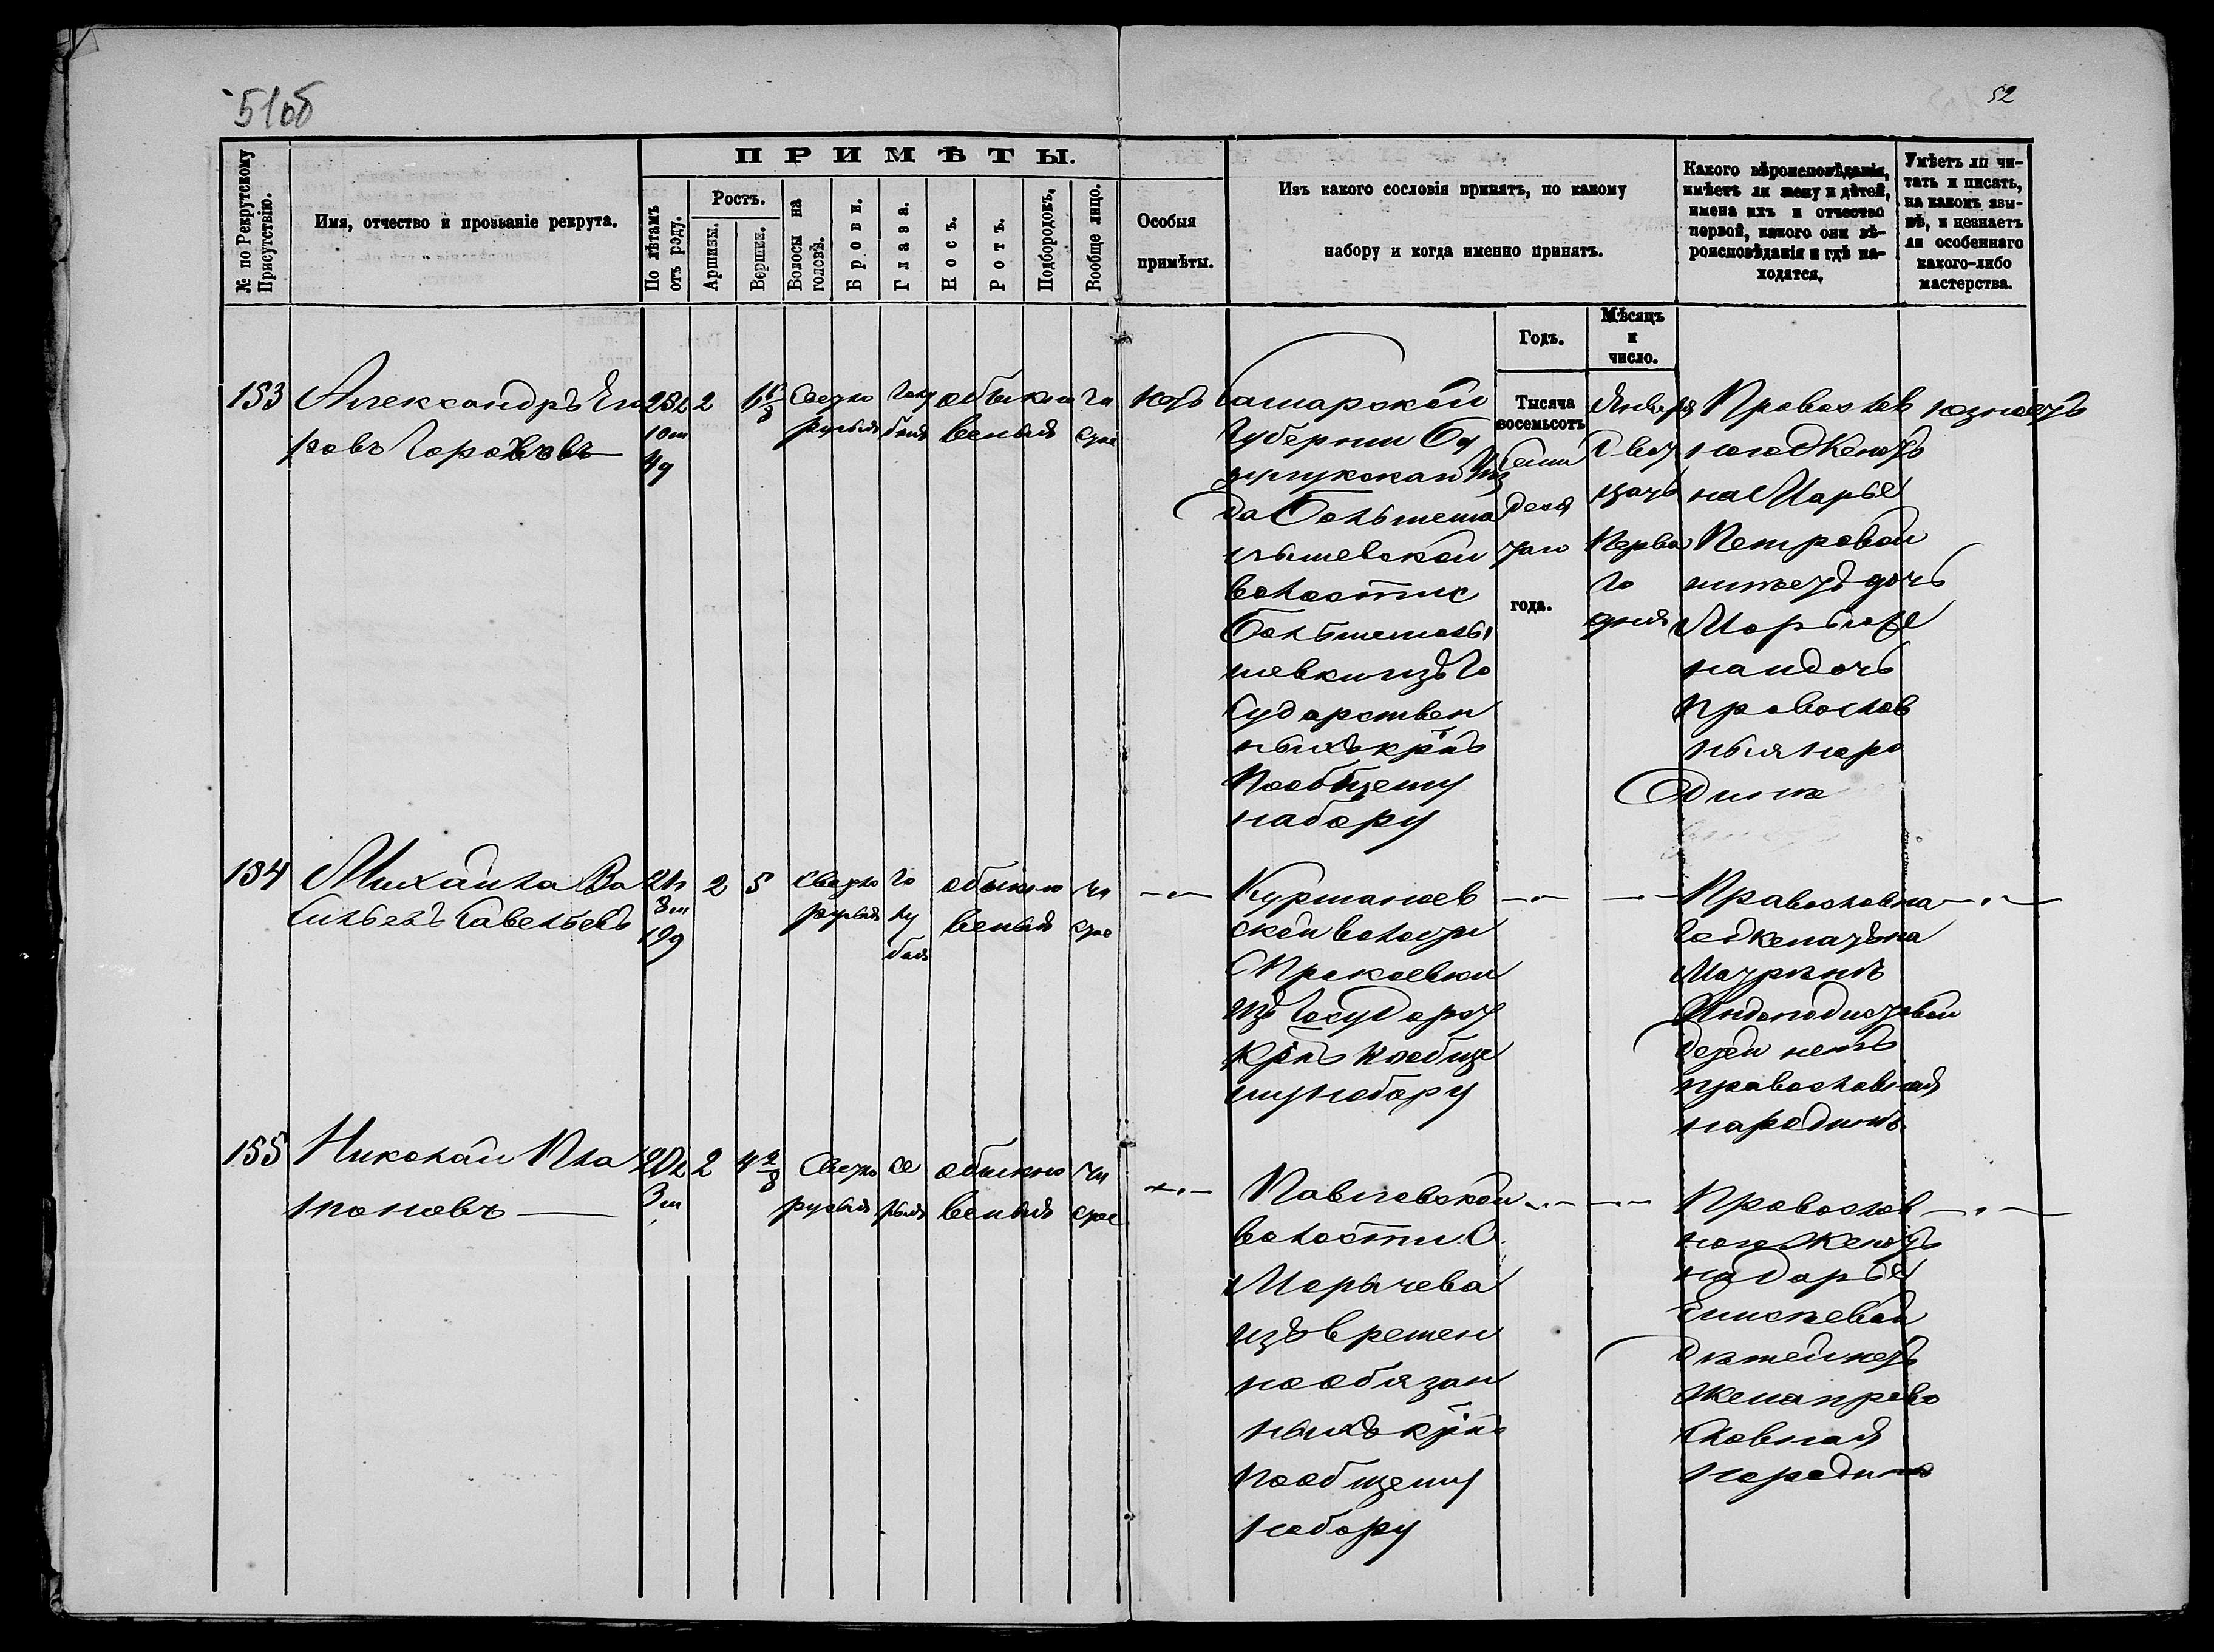 51об
52
№ по Рекрутскому Присутствію.
Имя, отчество и прозваніе рекрута.
ПРИМѢТЫ.
По лѣтамъ отъ роду.
Ростъ.
Аршины.
Вершки.
Волосы на головѣ.
Брови.
Глаза.
Носъ.
Ротъ.
Подбородокъ.
Вообще лицо.
Особыя
примѣты.
Изъ какого сословія принятъ, по какому
набору и когда именно принятъ.
Какого вѣроисповѣданія,
имѣетъ ли жену и дѣтей,
имена ихъ и отчество
первой, какого они вѣ-
роисповѣданія и гдѣ на-
ходятся.
Умѣетъ ли чи-
тать и писать,
на какомъ язы-
кѣ, и незнаетъ
ли особеннаго
какого-либо
мастерства.
Годъ.
Мѣсяцъ
и
число.
153
Александръ Его
ровъ Гороховъ
23л
10м
4д
2
Светло
русыя
Голу
быя
обыкно
веныя
чи
стое
нетъ
Самарской
Губерніи Бу
зулукскаго Уез
да
волости
изъ Го
сударствен
ныхъ крнъ
Пообщему
набору
Тысяча
восемьсотъ
семи
деся
таго
года.
Января
Двад
цать
Перва
го
дня
Православ
наго Женатъ
на Марье
Петровой
имеетъ дочь
Марью же
на и дочь
Православ
ныя наро
дине
незнаетъ
154
Михайла Ва
сильевъ Савельевъ
21л
8м
19д
2
5
Светло
русыя
го
лу
быя
обыкно
веныя
чи
стое
—·—
Курманаев
ской волости
С Прокаевки
изъ Государст
крнъ пообще
му набору
—·—
—·—
Православна
го Женатъ на
Матрене
детей нетъ
православная
народине
—·—
155
Николай Пла
тоновъ
20л
3м
2
4 2/8
Светло
русыя
се
рыя
обыкно
веныя
чи
стое
—·—
Павловской
волости С.
изъ времен
нообязан
ныхъ крнъ
Пообщему
набору
—·—
—·—
Православ
наго Женатъ
на Дарье
Елисеевой
детей нетъ
жена право
славная
народине
—·—